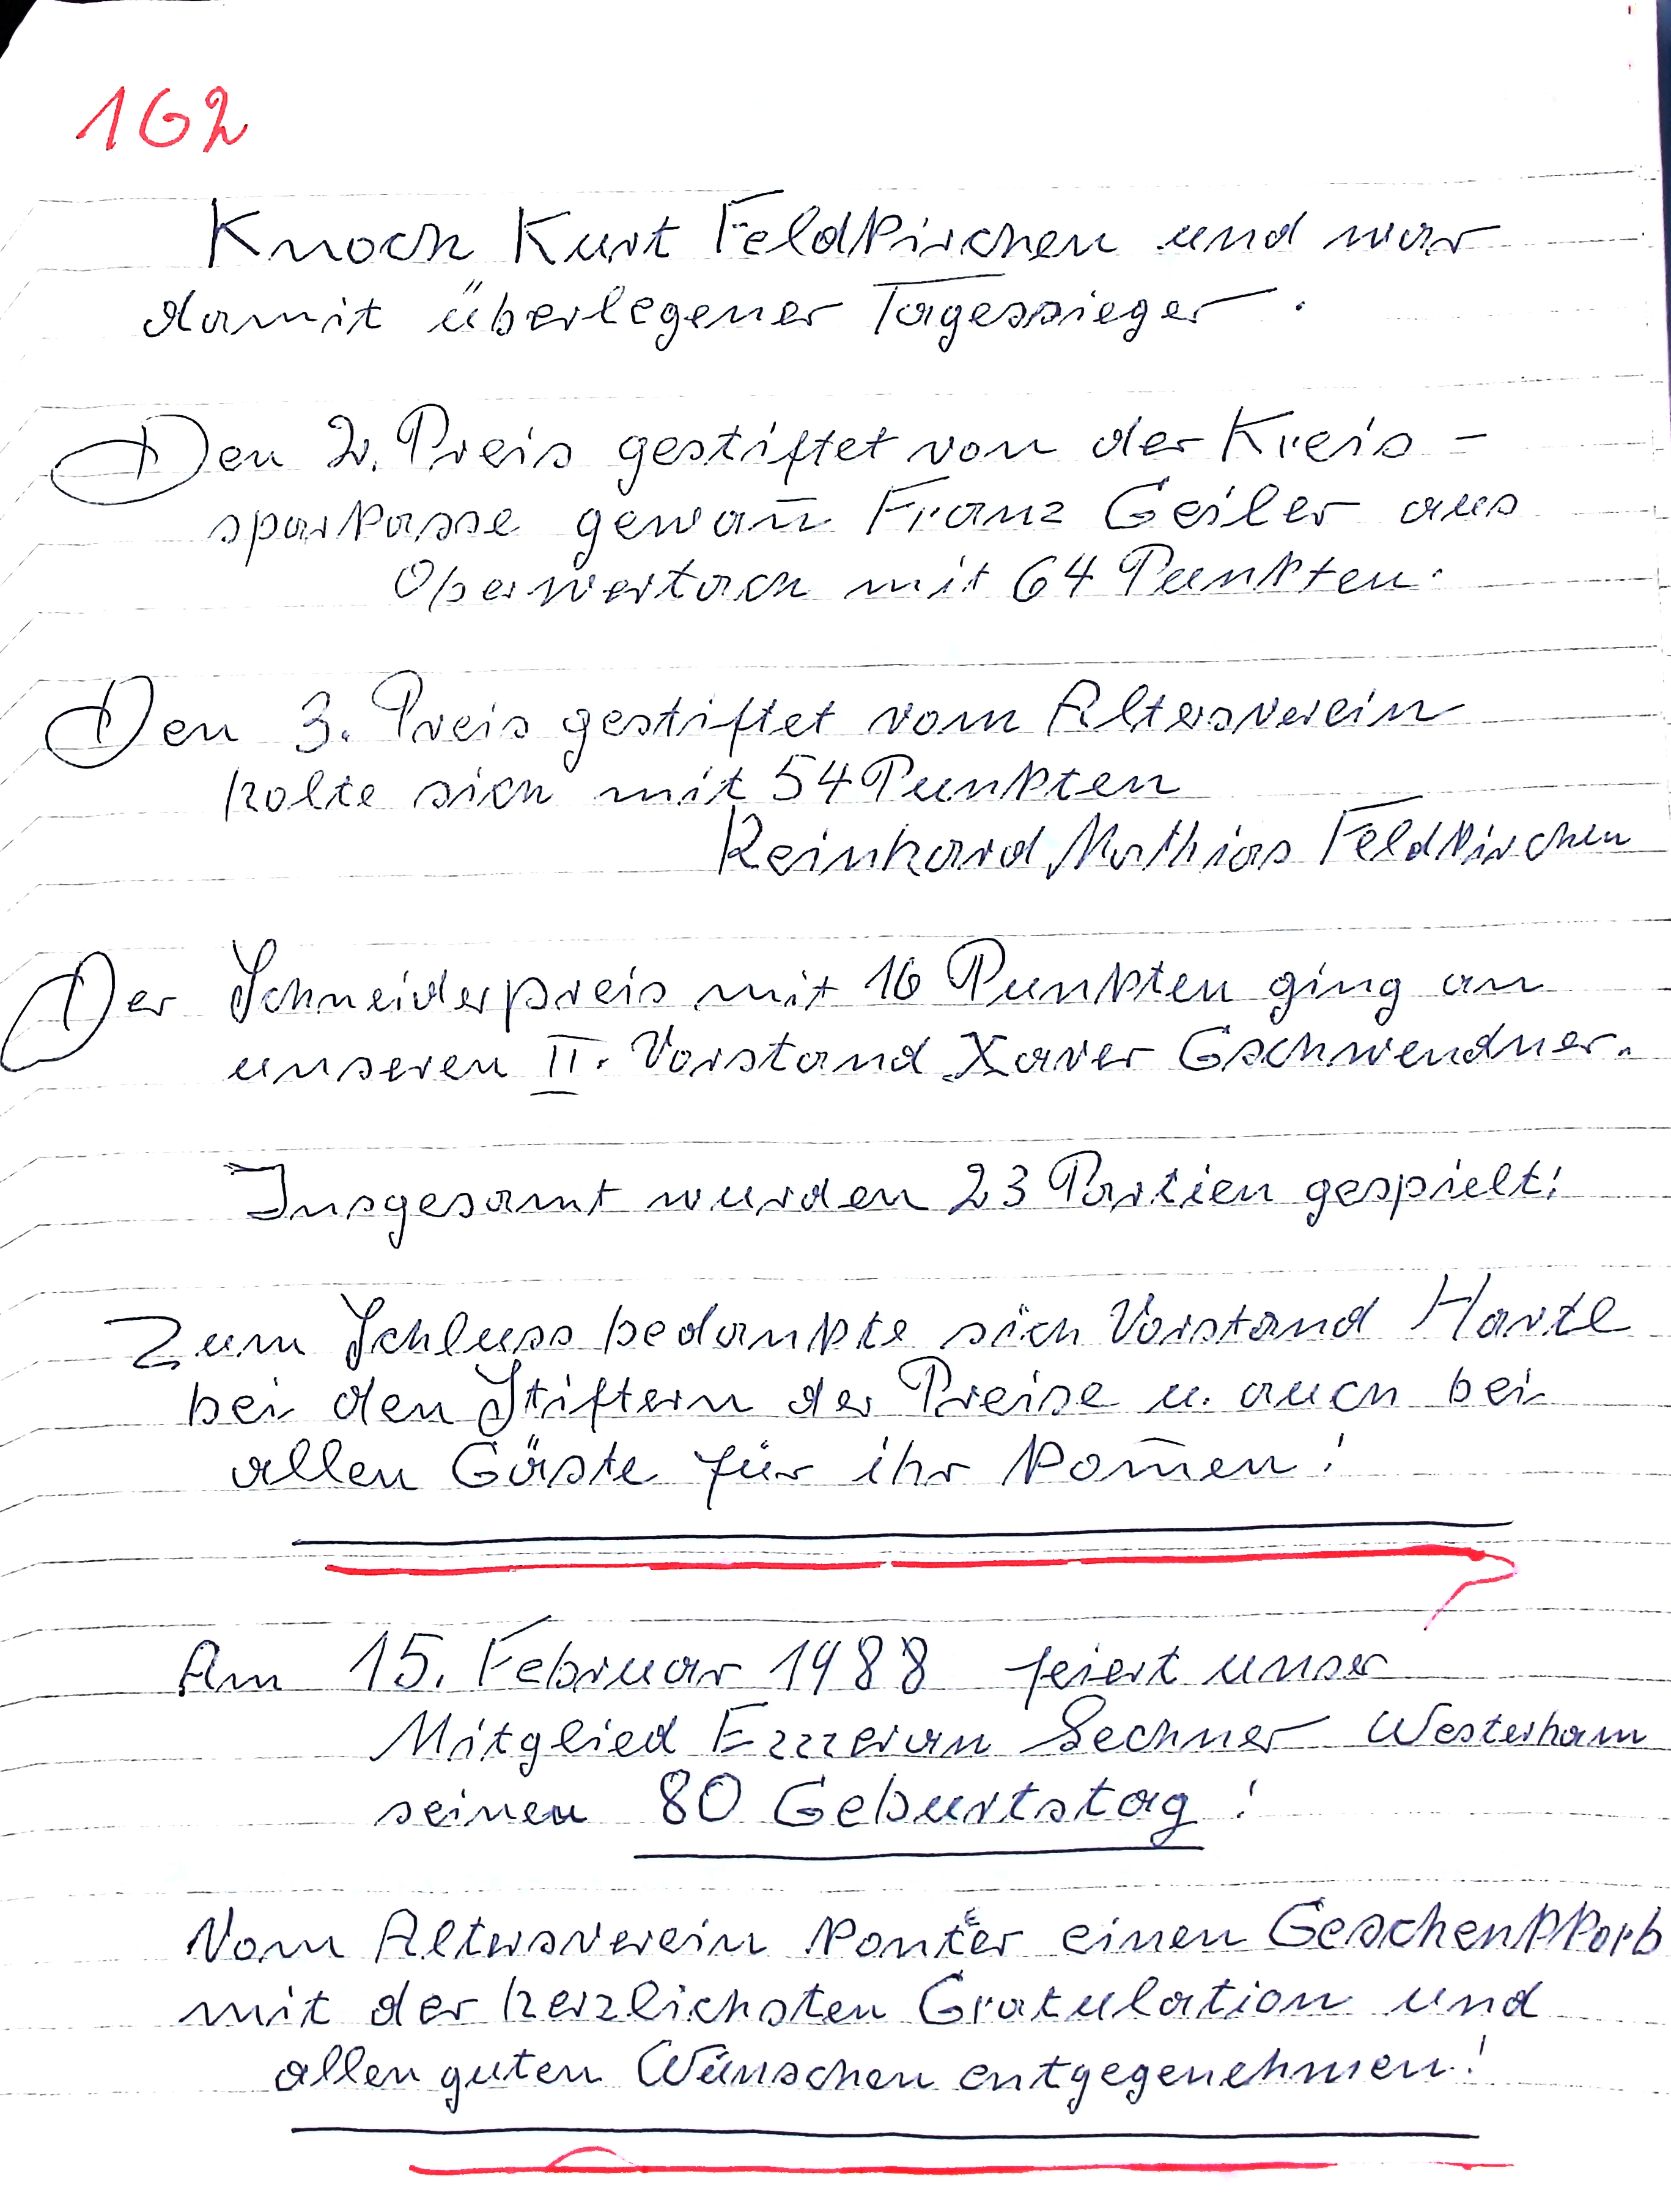 162
Knoch Kurt Feldkirchen und war
damit überlegener Tagessieger.
Den 2. Preis gestiftet von der Kreis-
sparkasse gewan̄ Franz Geiler aus
Oberwertach mit 64 Punkten.
Den 3. Preis gestiftet vom Altersverein
holte sich mit 54 Punkten
Reinhard Mathias Feldkirchen
Der Schneiderpreis mit 16 Punkten ging an
unseren II. Vorstand Xaver Gschwendner.
Insgesamt wurden 23 Partien gespielt!
Zum Schluss bedankte sich Vorstand Hartl
bei den Stiftern der Preise u. auch bei
allen Gäste für ihr kom̄en!
Am 15. Februar 1988 feiert unser
Mitglied Lechner Westerham
seinen 80 Geburtstag!
Vom Altersverein einen Geschenkkorb
mit der herzlichsten Gratulation und
allen guten Wünschen entgegenehmen!